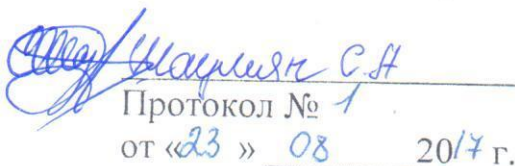 Шаумян С.А
Протокол № 1
от «23» 08 2017 г.